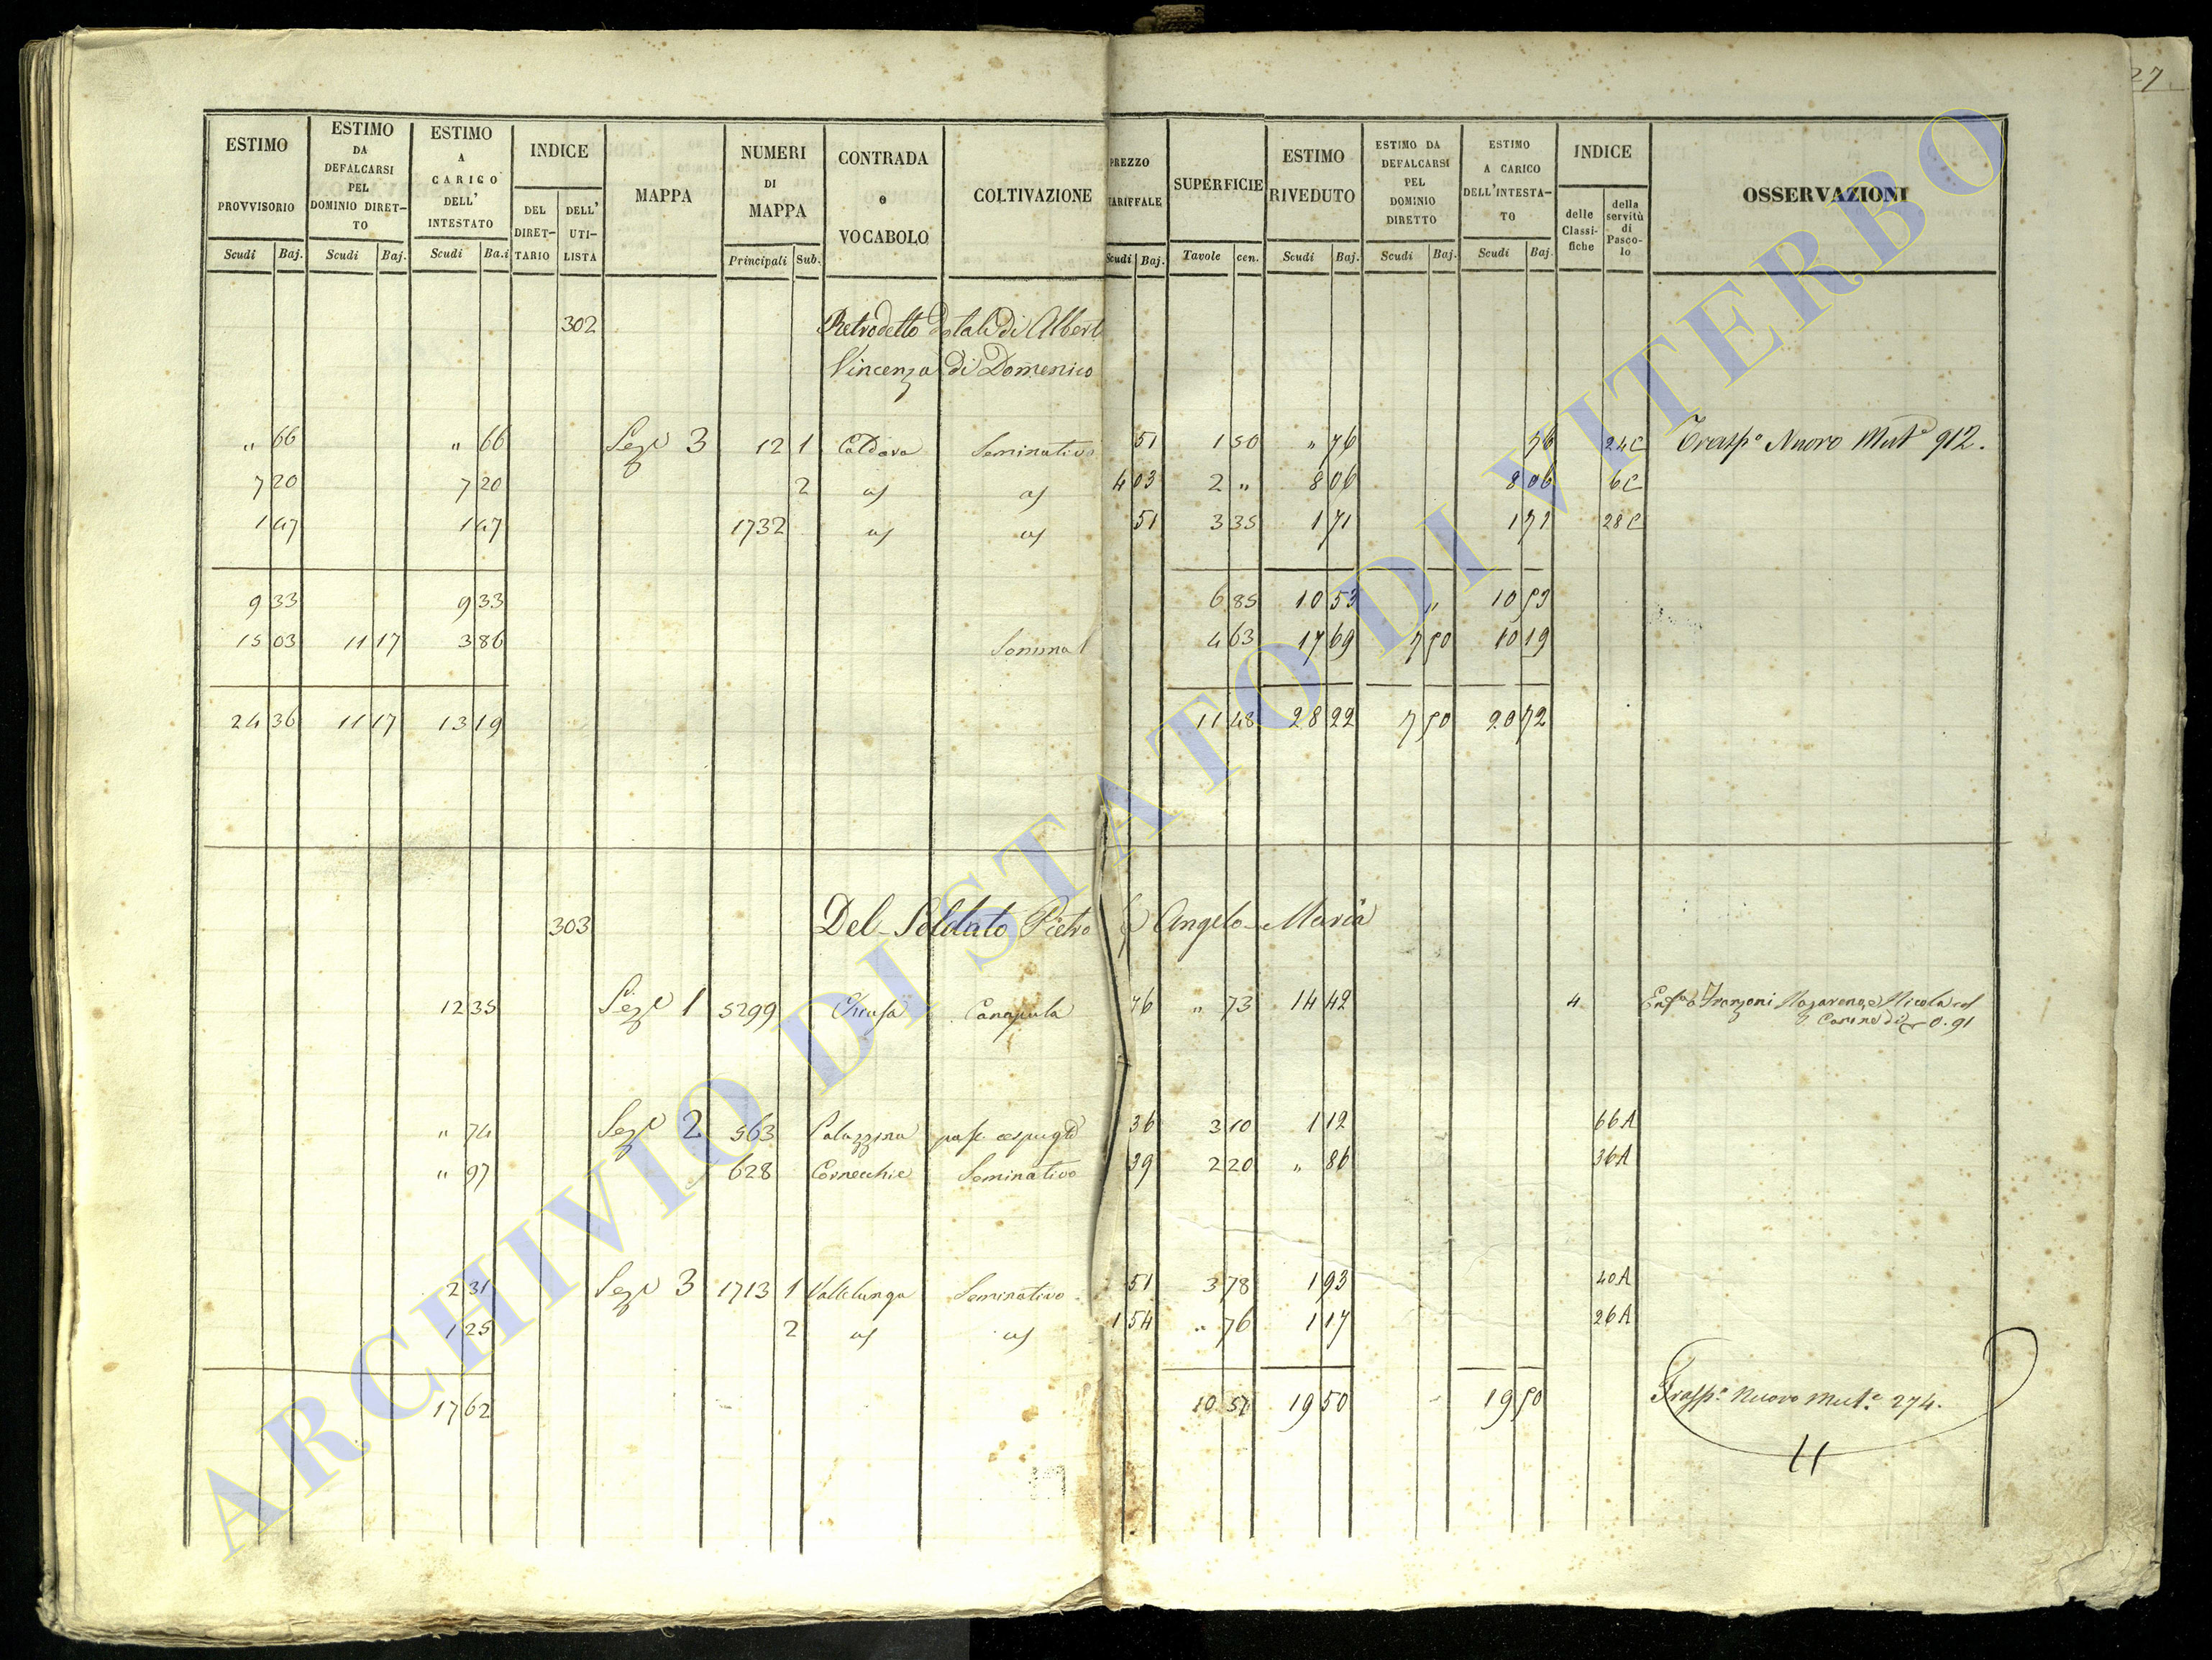 27
ESTIMO PROVVISORIO Scudi Baj.
ESTIMO DA DEFALCARSI PEL DOMINIO DIRET-TO Scudi Baj.
ESTIMO A CARICO DELL' INTESTATO Scudi Ba.i
INDICE DEL DIRET-TARIO DELL' UTI-LISTA
MAPPA
NUMERI DI MAPPA Principali Sub.
CONTRADA o VOCABOLO
COLTIVAZIONE
PREZZO TARIFFALE Scudi Baj.
SUPERFICIE Tavole cen.
ESTIMO RIVEDUTO Scudi Baj.
ESTIMO DA DEFALCARSI PEL DOMINIO DIRETTO Scudi Baj.
ESTIMO A CARICO DELL'INTESTA-TO Scudi Baj.
INDICE delle Classi-fiche della servitù di Pasco-lo
OSSERVAZIONI
302 Retrodetto dotali di Albert
Vincenza di Domenico
" 66 " 66 Seze 3 12 1 Caldara Seminativo 51 1 50 " 76 76 24C Trasp.o Nuovo Mut.e 912.
7 20 7 20 2 as as 4 03 2 " 8 06 8 06 6C
1 47 1 47 1732 as as 51 3 35 1 71 1 71 28C
9 33 9 33 6 85 10 53 " 10 53
15 03 11 17 3 86 Seminat 4 63 17 69 7 50 10 19
24 36 11 17 13 19 11 48 28 22 7 50 20 72
303 Del-Soldato Pietro Q Angelo-Maria
12 35 Seze 1 5299 Chiusa Canapula 76 " 73 14 42 4 Enf.a a Franzoni Nazareno e Nicola
0.91
" 74 Seze 2 563 Palazzina pasc. cespugto 36 3 10 1 12 66A
" 97 628 Cornecchie Seminativo 39 2 20 " 86 36A
2 31 Seze 3 1713 1 Vallelunga Seminativo 51 3 78 1 93 40A
1 25 2 as as 1 54 " 76 1 17 26A
17 62 10 57 19 50 19 50 Trasp.o Nuovo Mut.e 274.
11
ARCHIVIO DI STATO DI VITERBO